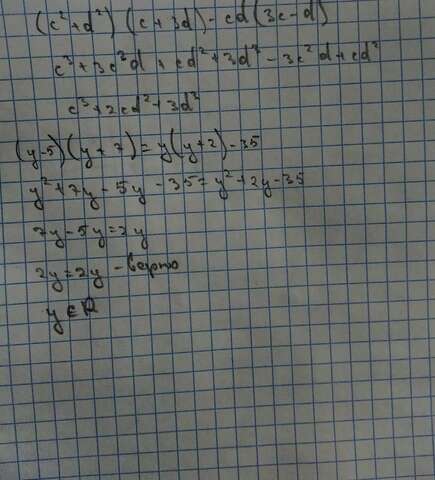 (c²+d²)(c+3d)-cd(3c-d)
c³+3c²d+cd²+3d³-3c²d+cd²
c³+2cd²+3d³
(y-5)(y+7)=y(y+2)-35
y²+7y-5y-35=y²+2y-35
7y-5y=2y
2y=2y - верно
y∈R